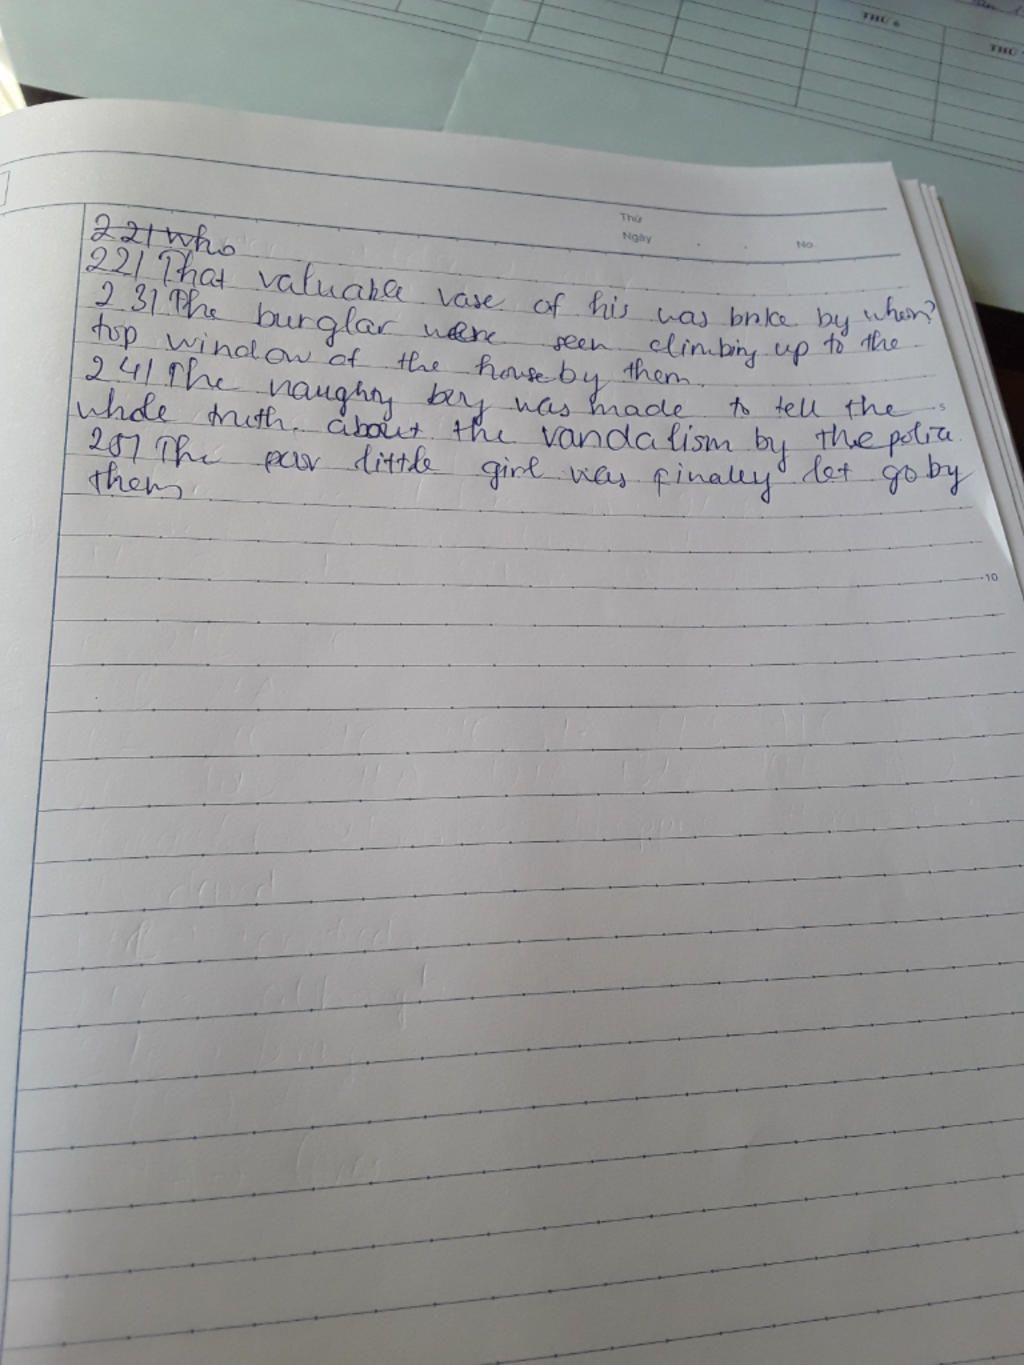 THỨ 6
THỨ
Thứ
Ngày . . No.
221 Who
221 That valuable vase of his was broke by whom?
231 The burglar were seen climbing up to the
top window of the house by them.
241 The naughty boy was made to tell the
whole truth. about the vandalism by the police
251 The poor little girl was finally let go by
them
5
10